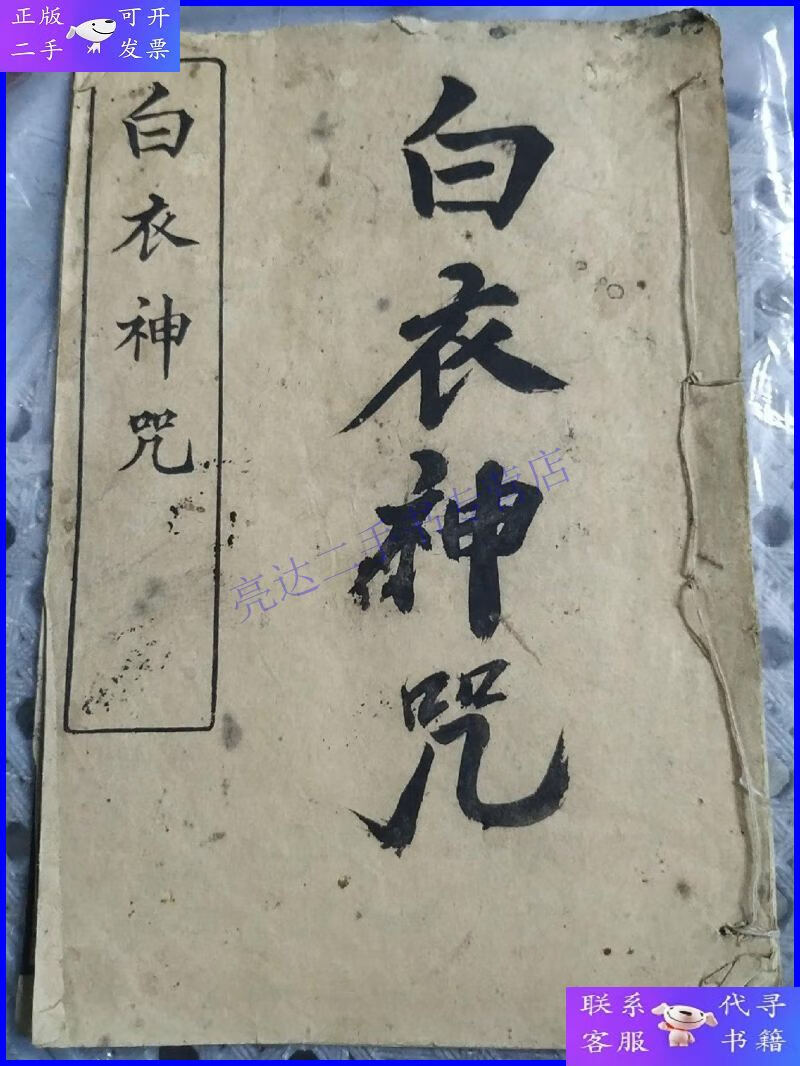 正版 可开
二手 发票
白衣神咒
白衣神咒
亮达二手书专营店
联系 代寻
客服 书籍